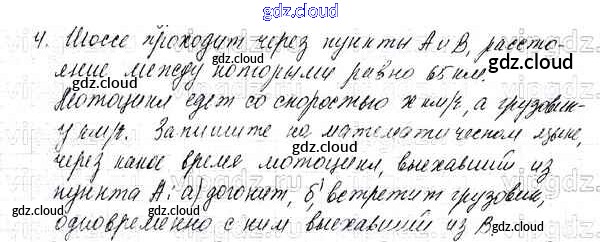 gdz.cloud
4. Шоссе проходит через пункты А и В, рассто-
яние между которыми равно 65 км.
gdz.cloud gdz.cloud
Мотоцикл едет со скоростью x км/ч, а грузовик-
y км/ч. Запишите на математическом языке,
через какое время мотоцикл, выехавший из
gdz.cloud
пункта А: а) догонит, б) встретит грузовик,
gdz.cloud gdz.cloud
одновременно с ним выехавший из В